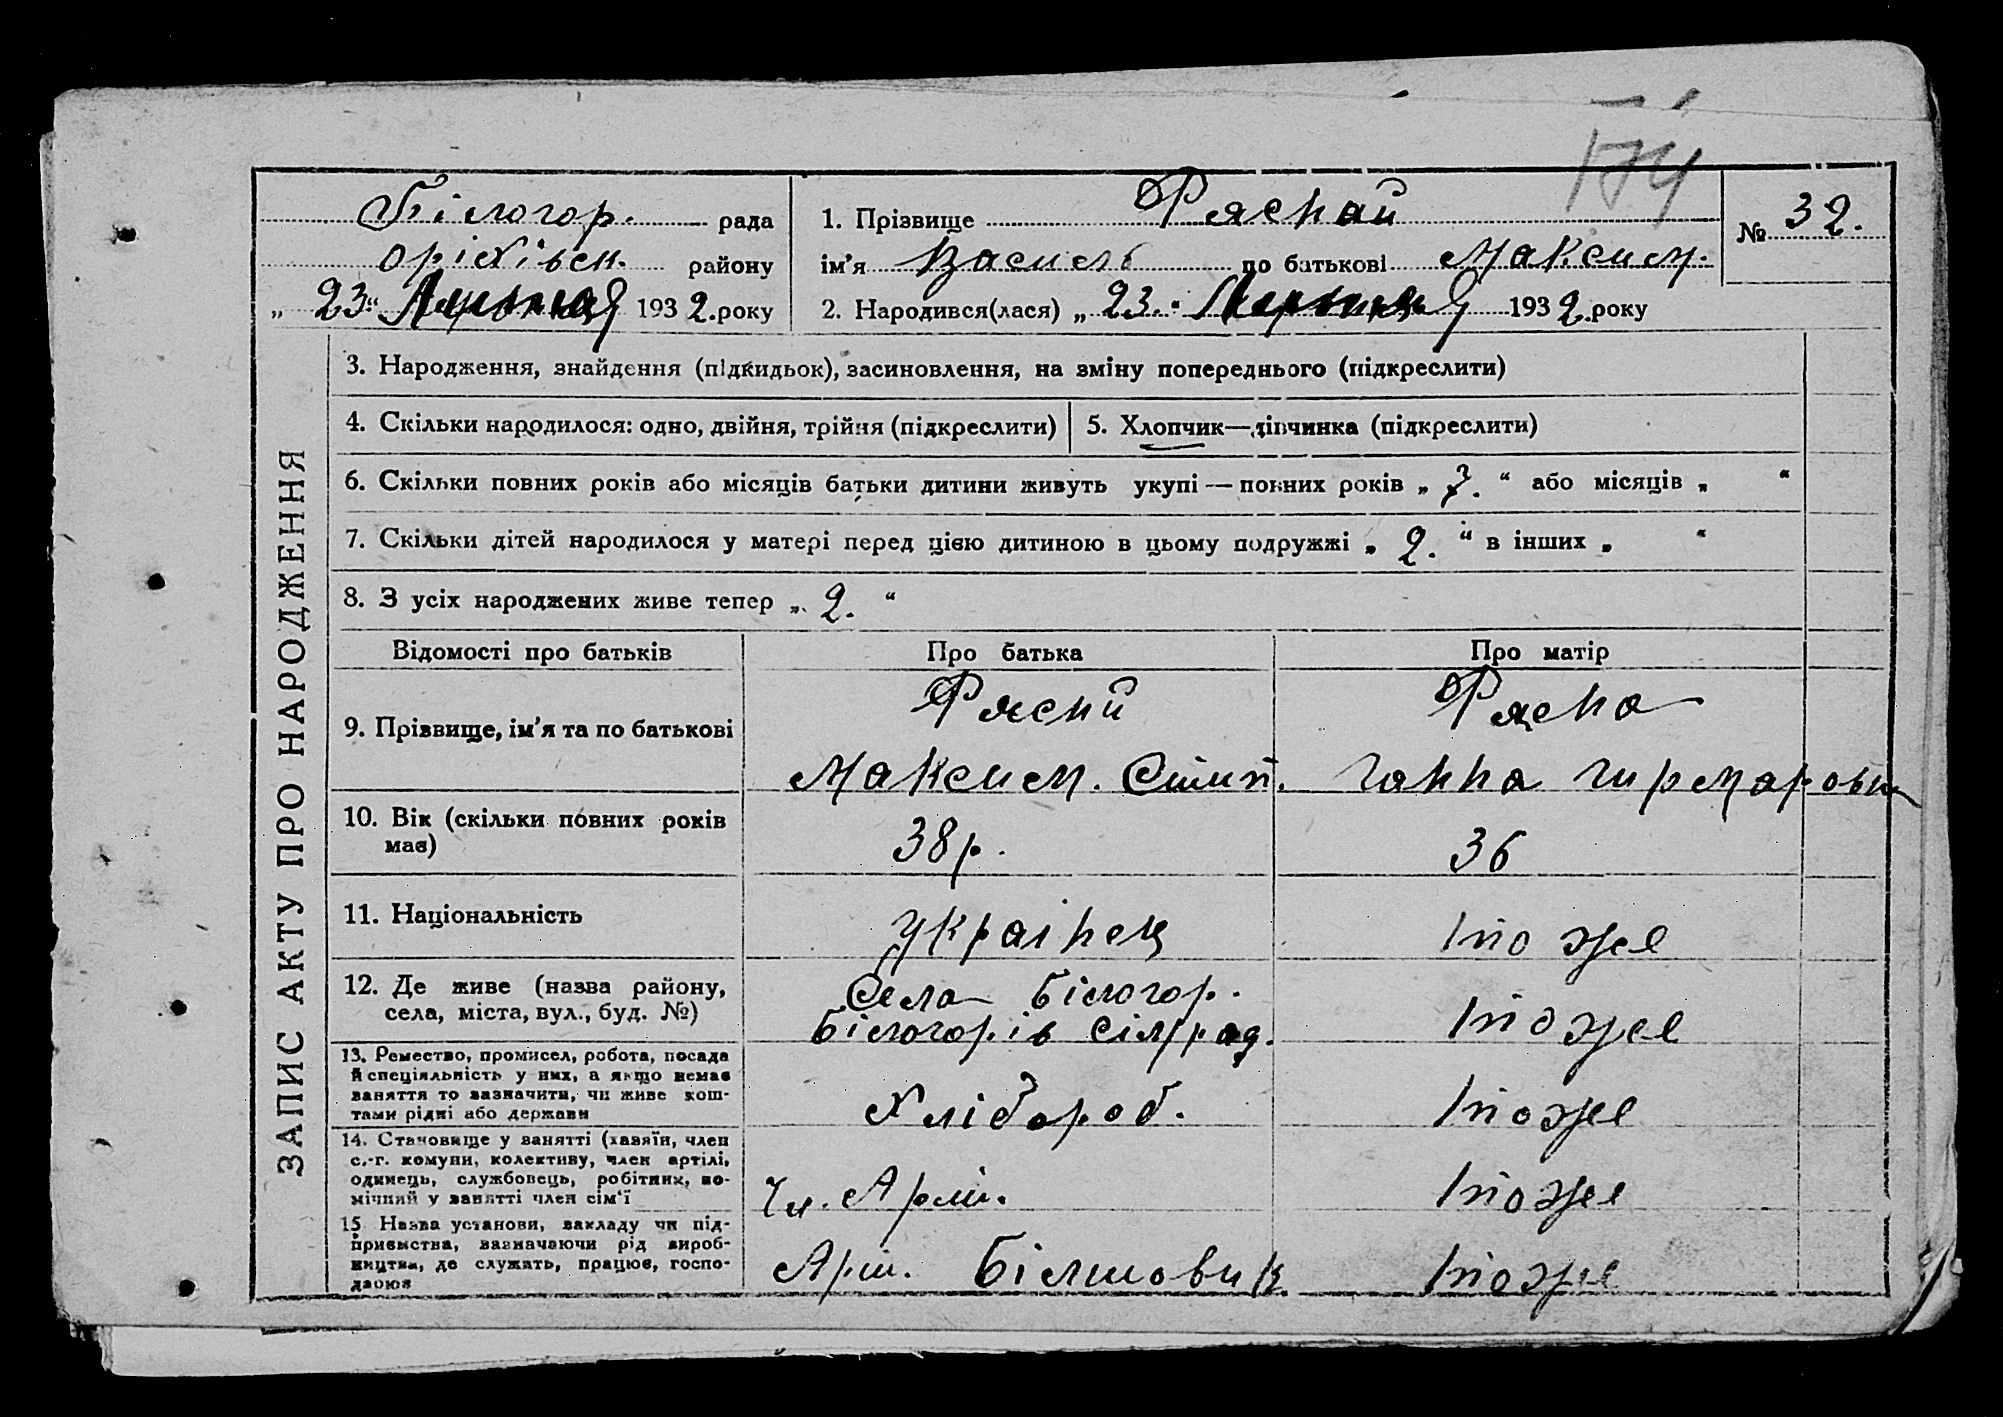 174
Білогор. рада
оріхівськ. району
„ 23 “ 1932. року
1. Прізвище Рясний
ім'я Василь по батькові Максим.
2. Народився(лася) „ 23. “ 1932. року
№ 32.
ЗАПИС АКТУ ПРО НАРОДЖЕННЯ
3. Народження, знайдення (підкидьок), засиновлення, на зміну попереднього (підкреслити)
4. Скільки народилося: одно, двійня, трійня (підкреслити)
5. Хлопчик—дівчинка (підкреслити)
6. Скільки повних років або місяців батьки дитини живуть укупі — повних років „ “ або місяців „ “
7. Скільки дітей народилося у матері перед цією дитиною в цьому подружжі „ 2. “ в інших „ “
8. З усіх народжених живе тепер „ 2. “
Відомості про батьків
Про батька
Про матір
9. Прізвище, ім'я та по батькові
Рясний
Максим.
Рясна
Ганна
10. Вік (скільки повних років
має)
38 р.
36
11. Національність
українец
тоже
12. Де живе (назва району,
села, міста, вул., буд. №)
Села Білогор.
Білогорів сілрад.
тоже
13. Ремество, промисел, робота, посада
й спеціяльність у них, а якщо немає
заняття то зазначити, чи живе кош-
тами рідні або держави
Хлібороб.
тоже
14. Становище у занятті (хазяїн, член
с.-г. комуни, колективу, член артілі,
одинець, службовець, робітник, по-
мічний у занятті член сім'ї
Чл. Арт.
тоже
15. Назва установи, закладу чи під-
приємства, зазначаючи рід вироб-
ництва, де служить, працює, госпо-
дарює
Арт. Більшовик
тоже